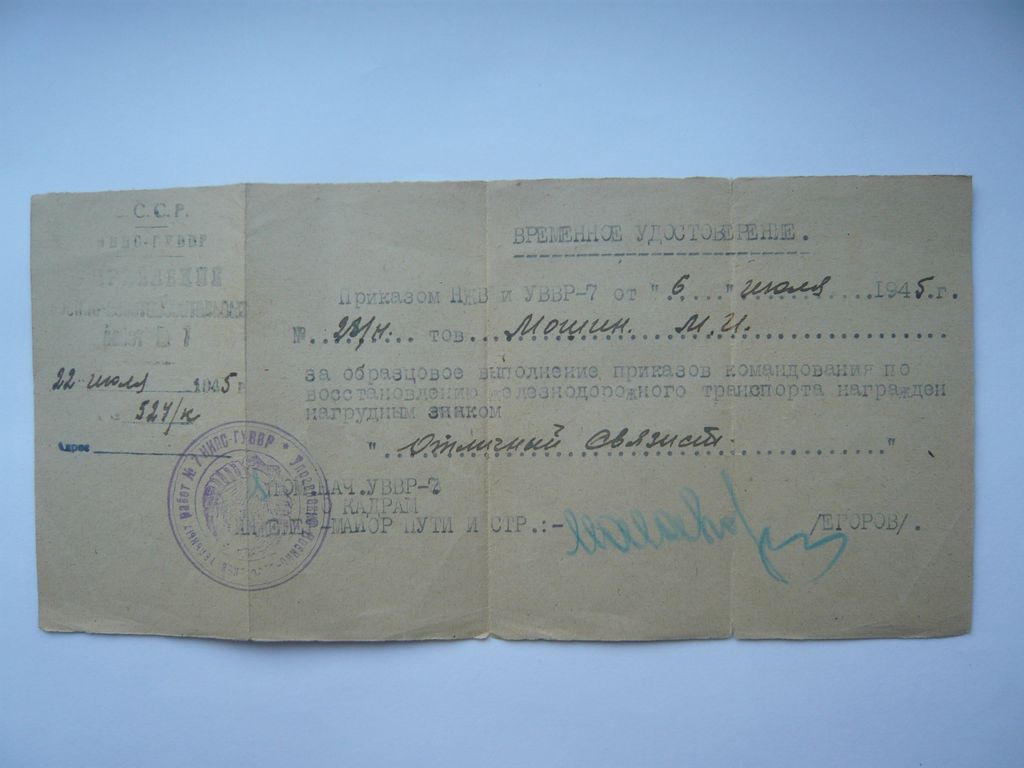 С.С.Р.
НКПС-ГУВВР
22 июля 1945 г
№ 324/к
Адрес
ВРЕМЕННОЕ УДОСТОВЕРЕНИЕ.
Приказом НКВ и УВВР-7 от "6" июля 1945.г.
№ 23/н. тов Мошин. М.И.
за образцовое выполнение приказов командования по
восстановлению железнодорожного транспорта награжден
нагрудным знаком
"Отличный Связист."
ПОМ.НАЧ.УВВР-7
КАДРАМ
-МАЙОР ПУТИ И СТР.:- /ЕГОРОВ/.
работ № 7 НКПС-ГУВВР * Управление